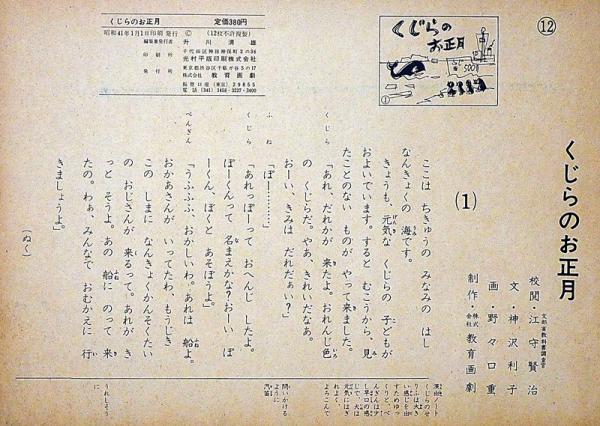 ⑫
くじらの
お正月
500円
①
くじらのお正月
定価380円
昭和41年1月1日印刷 発行
©
(12枚不許複製)
編集兼発行者
升川清雄
印刷所
千代田区神田神保町2の36
光村平版印刷株式会社
発行所
東京都渋谷区千駄ヶ谷5の17
株式会社 教育画劇
振替口座(東京)29855
電話(341) 1458・3227・3400
くじらのお正月
文部省教科書調査官
校閲・江守賢治
文・神沢利子
画・野々口重
制作・株式会社教育画劇
(1)
ここは ちきゅうの みなみの はし
なんきょくの 海です。
きょうも、元気な くじらの 子どもが
およいでいます。すると むこうから、見
たことのない ものが やって来ました。
くじら
「あれ、だれかが 来たよ。おれんじ色
の くじらだ。やあ、きれいだなあ。
おーい、きみは だれだぁい?」
ふね
「ぼー………」
くじら
「あれっぽーって おへんじ したよ。
ぼーくんって 名まえかな?おーい ぼ
ーくん、ぼくと あそぼうよ」
ぺんぎん
「うふふふ、おかしいわ。あれは 船よ。
おかあさんが いってたわ、もうじき
この しまに なんきょくかんそくたい
の おじさんが 来るって。あれが き
っと そうよ。あの 船に のって 来
たの。わぁ、みんなで おむかえに 行
きましょうよ」
(ぬく)
演出ノート
くじらのせ
りふは大き
い感じを出
すためゆっ
くりと、ぺ
んぎんは少
し早口の感
じで、犬は
元気にはぎ
れよく、
よろこんで
問いかける
ように
汽笛
うれしそう
に